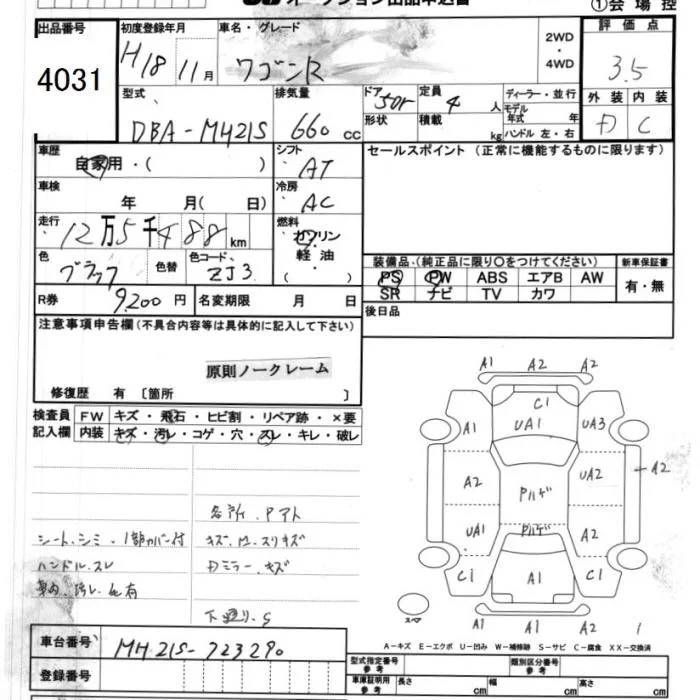 オークション出品申込書
①会場控
出品番号
4031
初度登録年月
H18 11月
車名・グレード
ワゴンR
2WD
・
4WD
評価点
3.5
外装 内装
D C
型式
DBA-MH21S
排気量
660 cc
ドア 5Dr
形状
定員 4 人
積載 kg
ディーラー・並行
モデル年式 年
ハンドル 左・右
車歴
自家用・( )
シフト
AT
セールスポイント (正常に機能するものに限ります)
車検
年 月( 日)
冷房
AC
走行
12万5千488km
燃料
ガソリン
軽油
( )
色
ブラック
色替
色コード
ZJ3
装備品 (純正品に限り○をつけてください)
PS PW ABS エアB AW
SR ナビ TV カワ
新車保証書
有・無
R券 9200円
名変期限 月 日
後日品
注意事項申告欄 (不具合内容等は具体的に記入して下さい)
原則ノークレーム
修復歴 有 〔箇所 〕
検査員記入欄
FW キズ・飛石・ヒビ割・リペア跡・×要
内装 キズ・汚レ・コゲ・穴・スレ・キレ・破レ
各所、Pアト
シート、シミ・1部カバー付
キズ、凹、スリキズ
ハンドル、スレ
Dミラー、キズ
車内、汚レ、
下廻り、S
A1 A2 A2
C1
A1 UA1 UA3
A2 Pハゲ UA2 A2
UA1 Pハゲ A2
C1 A1 C1
スペア
A1 A2 A2 1
A-キズ E-エクボ U-凹み W-補修跡 S-サビ C-腐食 XX-交換済
車台番号 MH21S-723290
登録番号
型式指定番号 参考
類別区分番号 参考
車庫証明用 参考
長さ cm 幅 cm 高さ cm